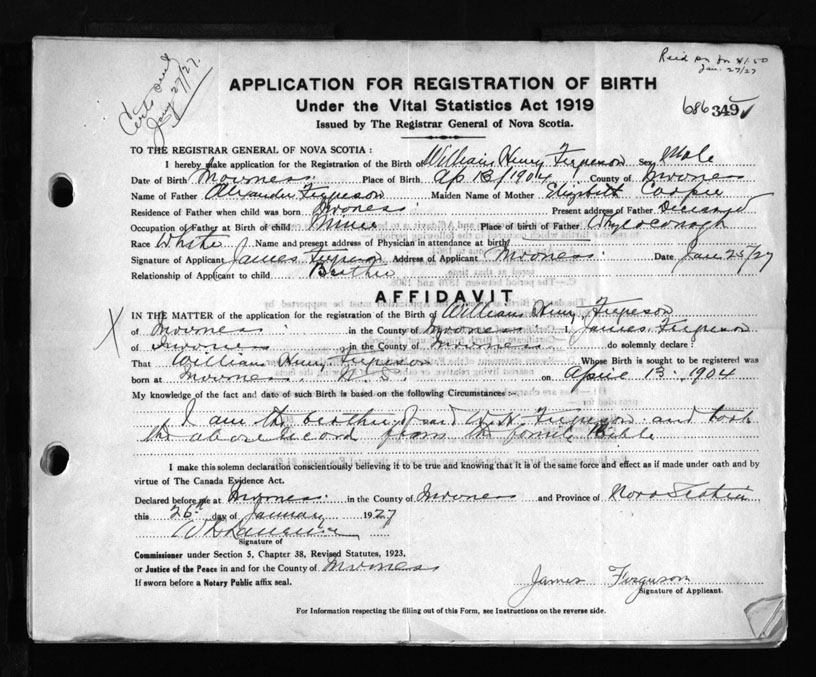 Certs send
Jany 27/27.
Jan. 27/27
APPLICATION FOR REGISTRATION OF BIRTH
Under the Vital Statistics Act 1919
Issued by The Registrar General of Nova Scotia.
686 349
TO THE REGISTRAR GENERAL OF NOVA SCOTIA :
I hereby make application for the Registration of the Birth of William Henry Fergueson Sex Male
Date of Birth Inverness Place of Birth Ap 13/1904 County of Inverness
Name of Father Alexander Fergueson Maiden Name of Mother Elizabeth Cooper
Residence of Father when child was born Inverness Present address of Father Deceased
Occupation of Father at Birth of Child Miner Place of birth of Father Whycocomagh
Race White Name and present address of Physician in attendance at birth
Signature of Applicant James Ferguson Address of Applicant Inverness Date Jan 25/27
Relationship of Applicant to child Brother
AFFIDAVIT
X IN THE MATTER of the application for the registration of the Birth of William Henry Fergueson
of Inverness in the County of Inverness I, James Fergueson
of Inverness in the County of Inverness do solemnly declare :
That William Henry Fergueson Whose Birth is sought to be registered was
born at Inverness. N. S. on April 13. 1904
My knowledge of the fact and date of such Birth is based on the following Circumstances :-
I am the brother of said W. H. Fergueson and took
the above record from the family Bible
I make this solemn declaration conscientiously believing it to be true and knowing that it is of the same force and effect as if made under oath and by
virtue of The Canada Evidence Act.
Declared before me at Inverness in the County of Inverness and Province of Nova Scotia
this 26th day of January 1927
Signature of
Commissioner under Section 5, Chapter 38, Revised Statutes, 1923,
or Justice of the Peace in and for the County of Inverness
If sworn before a Notary Public affix seal.
James Ferguson
Signature of Applicant.
For Information respecting the filling out of this Form, see Instructions on the reverse side.